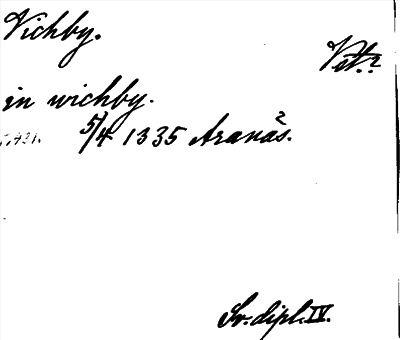 Vichby.
Vst.?
in wichby.
5/4 1335 Aranäs.
Sv. dipl. IV.